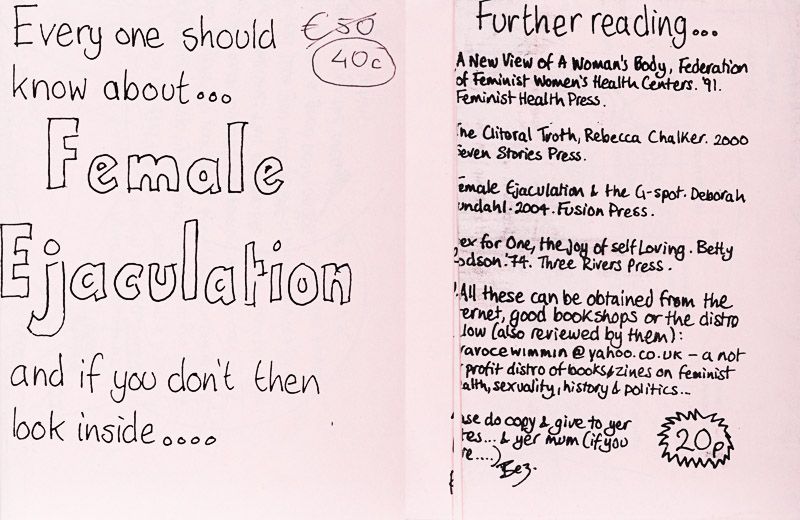 Every one should
know about...
€50
40c
Female
Ejaculation
and if you don't then
look inside....
Further reading...
A New View of A Woman's Body, Federation
of Feminist Women's Health Centers. '91.
Feminist Health Press.
The Clitoral Truth, Rebecca Chalker. 2000
Seven Stories Press.
emale Ejaculation & the G-spot. Deborah
undahl. 2004. Fusion Press.
ex for One, the joy of self Loving. Betty
odson. '74. Three Rivers Press.
All these can be obtained from the
ernet, good bookshops or the distro
low (also reviewed by them):
avocewimmin@yahoo.co.uk - a not
profit distro of books & zines on feminist
alth, sexuality, history & politics...
se do copy & give to yer
tes... & yer mum (if you
re....)
Bez.
20p